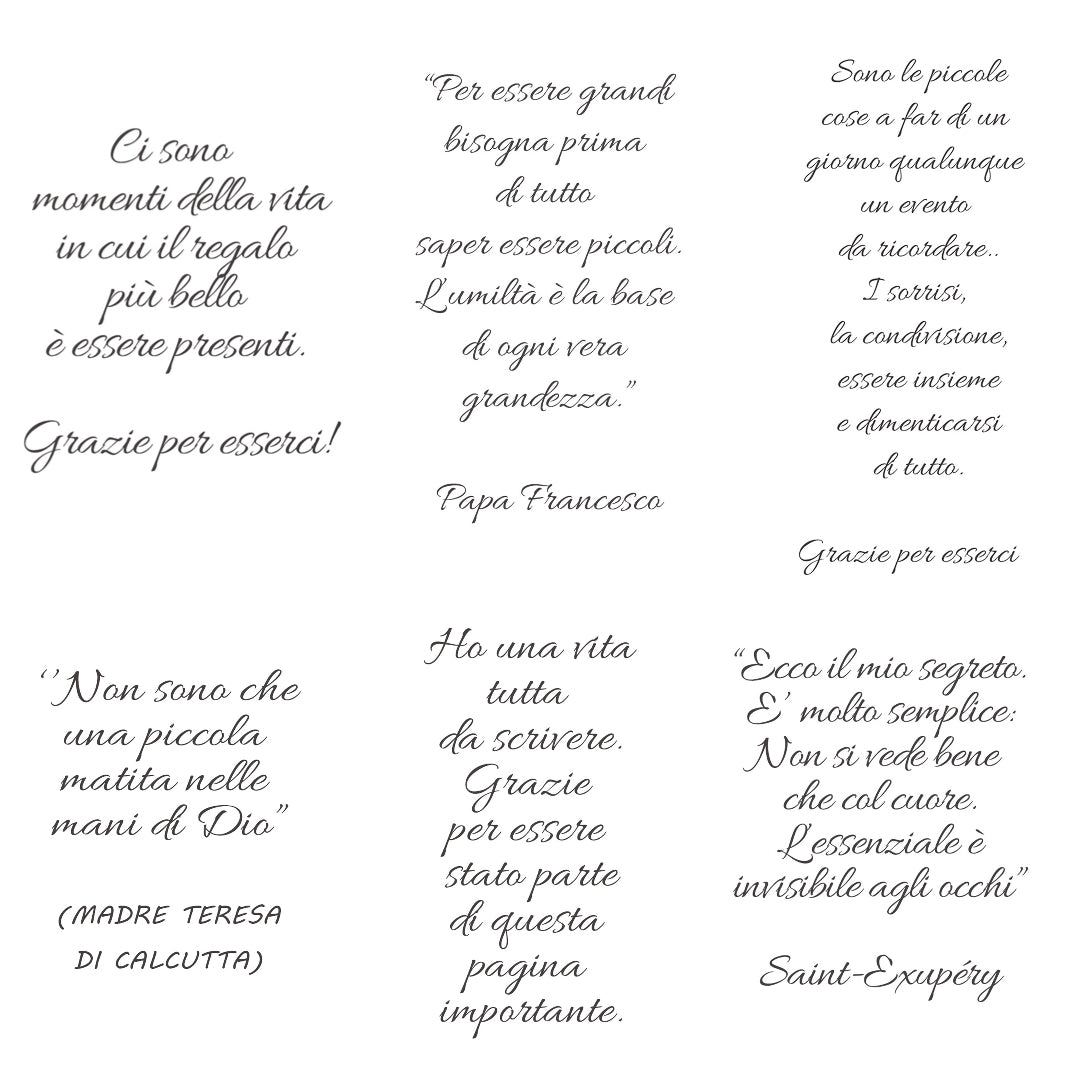 Ci sono
momenti della vita
in cui il regalo
più bello
è essere presenti.
Grazie per esserci!
“Per essere grandi
bisogna prima
di tutto
saper essere piccoli.
L'umiltà è la base
di ogni vera
grandezza.”
Papa Francesco
Sono le piccole
cose a far di un
giorno qualunque
un evento
da ricordare..
I sorrisi,
la condivisione,
essere insieme
e dimenticarsi
di tutto.
Grazie per esserci
‘’Non sono che
una piccola
matita nelle
mani di Dio”
(MADRE TERESA
DI CALCUTTA)
Ho una vita
tutta
da scrivere.
Grazie
per essere
stato parte
di questa
pagina
importante.
“Ecco il mio segreto.
E' molto semplice:
Non si vede bene
che col cuore.
L'essenziale è
invisibile agli occhi”
Saint-Exupéry